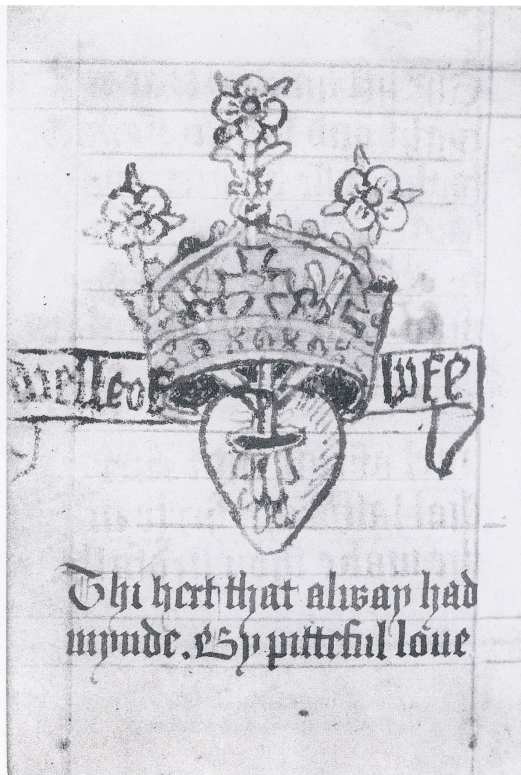 welle of lyfe
Thi hert that alway had
mynde. By pitteful loue